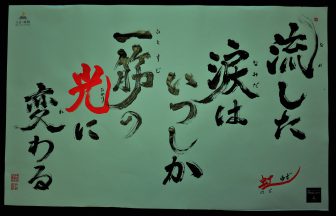 流した
涙は
なみだ
いつしか
一筋の
ひとすじ
光に
変わる
か